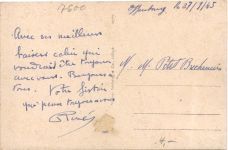 7600
Offenburg le 27/8/65
Avec ses meilleurs
baisers celui qui
voudrait être toujours
avec vous. Bonjour à
tous. Votre
qui pense toujours à vous
René
M. M.